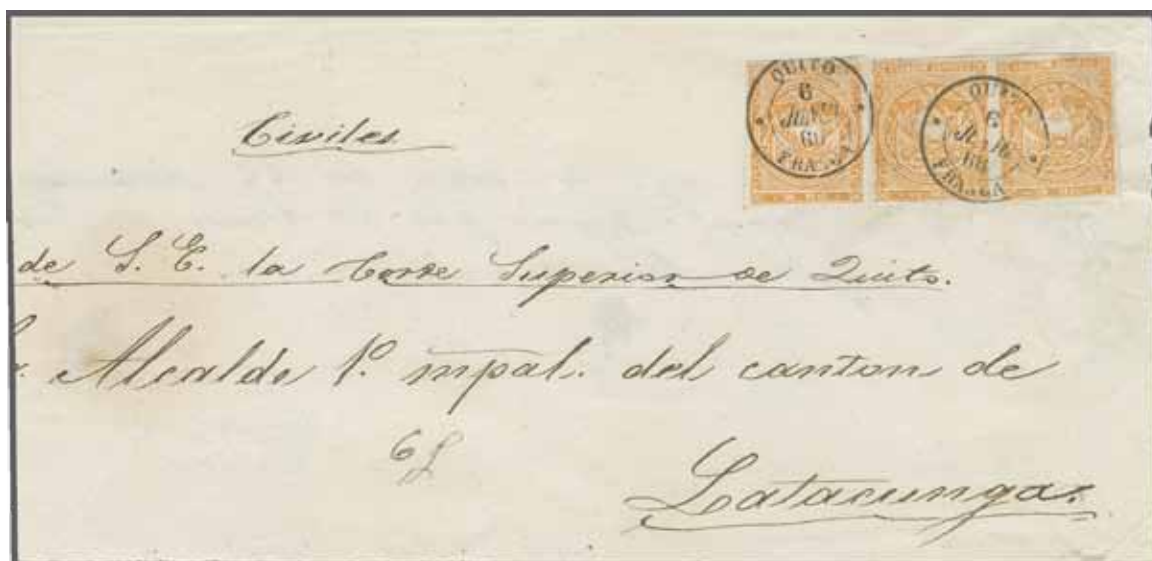 QUITO
6
FRANCA
6
FRANCA
Civiles
de S. E. la Corte Superior de Quito.
Alcalde 1º mpal. del canton de
6f
Latacunga.